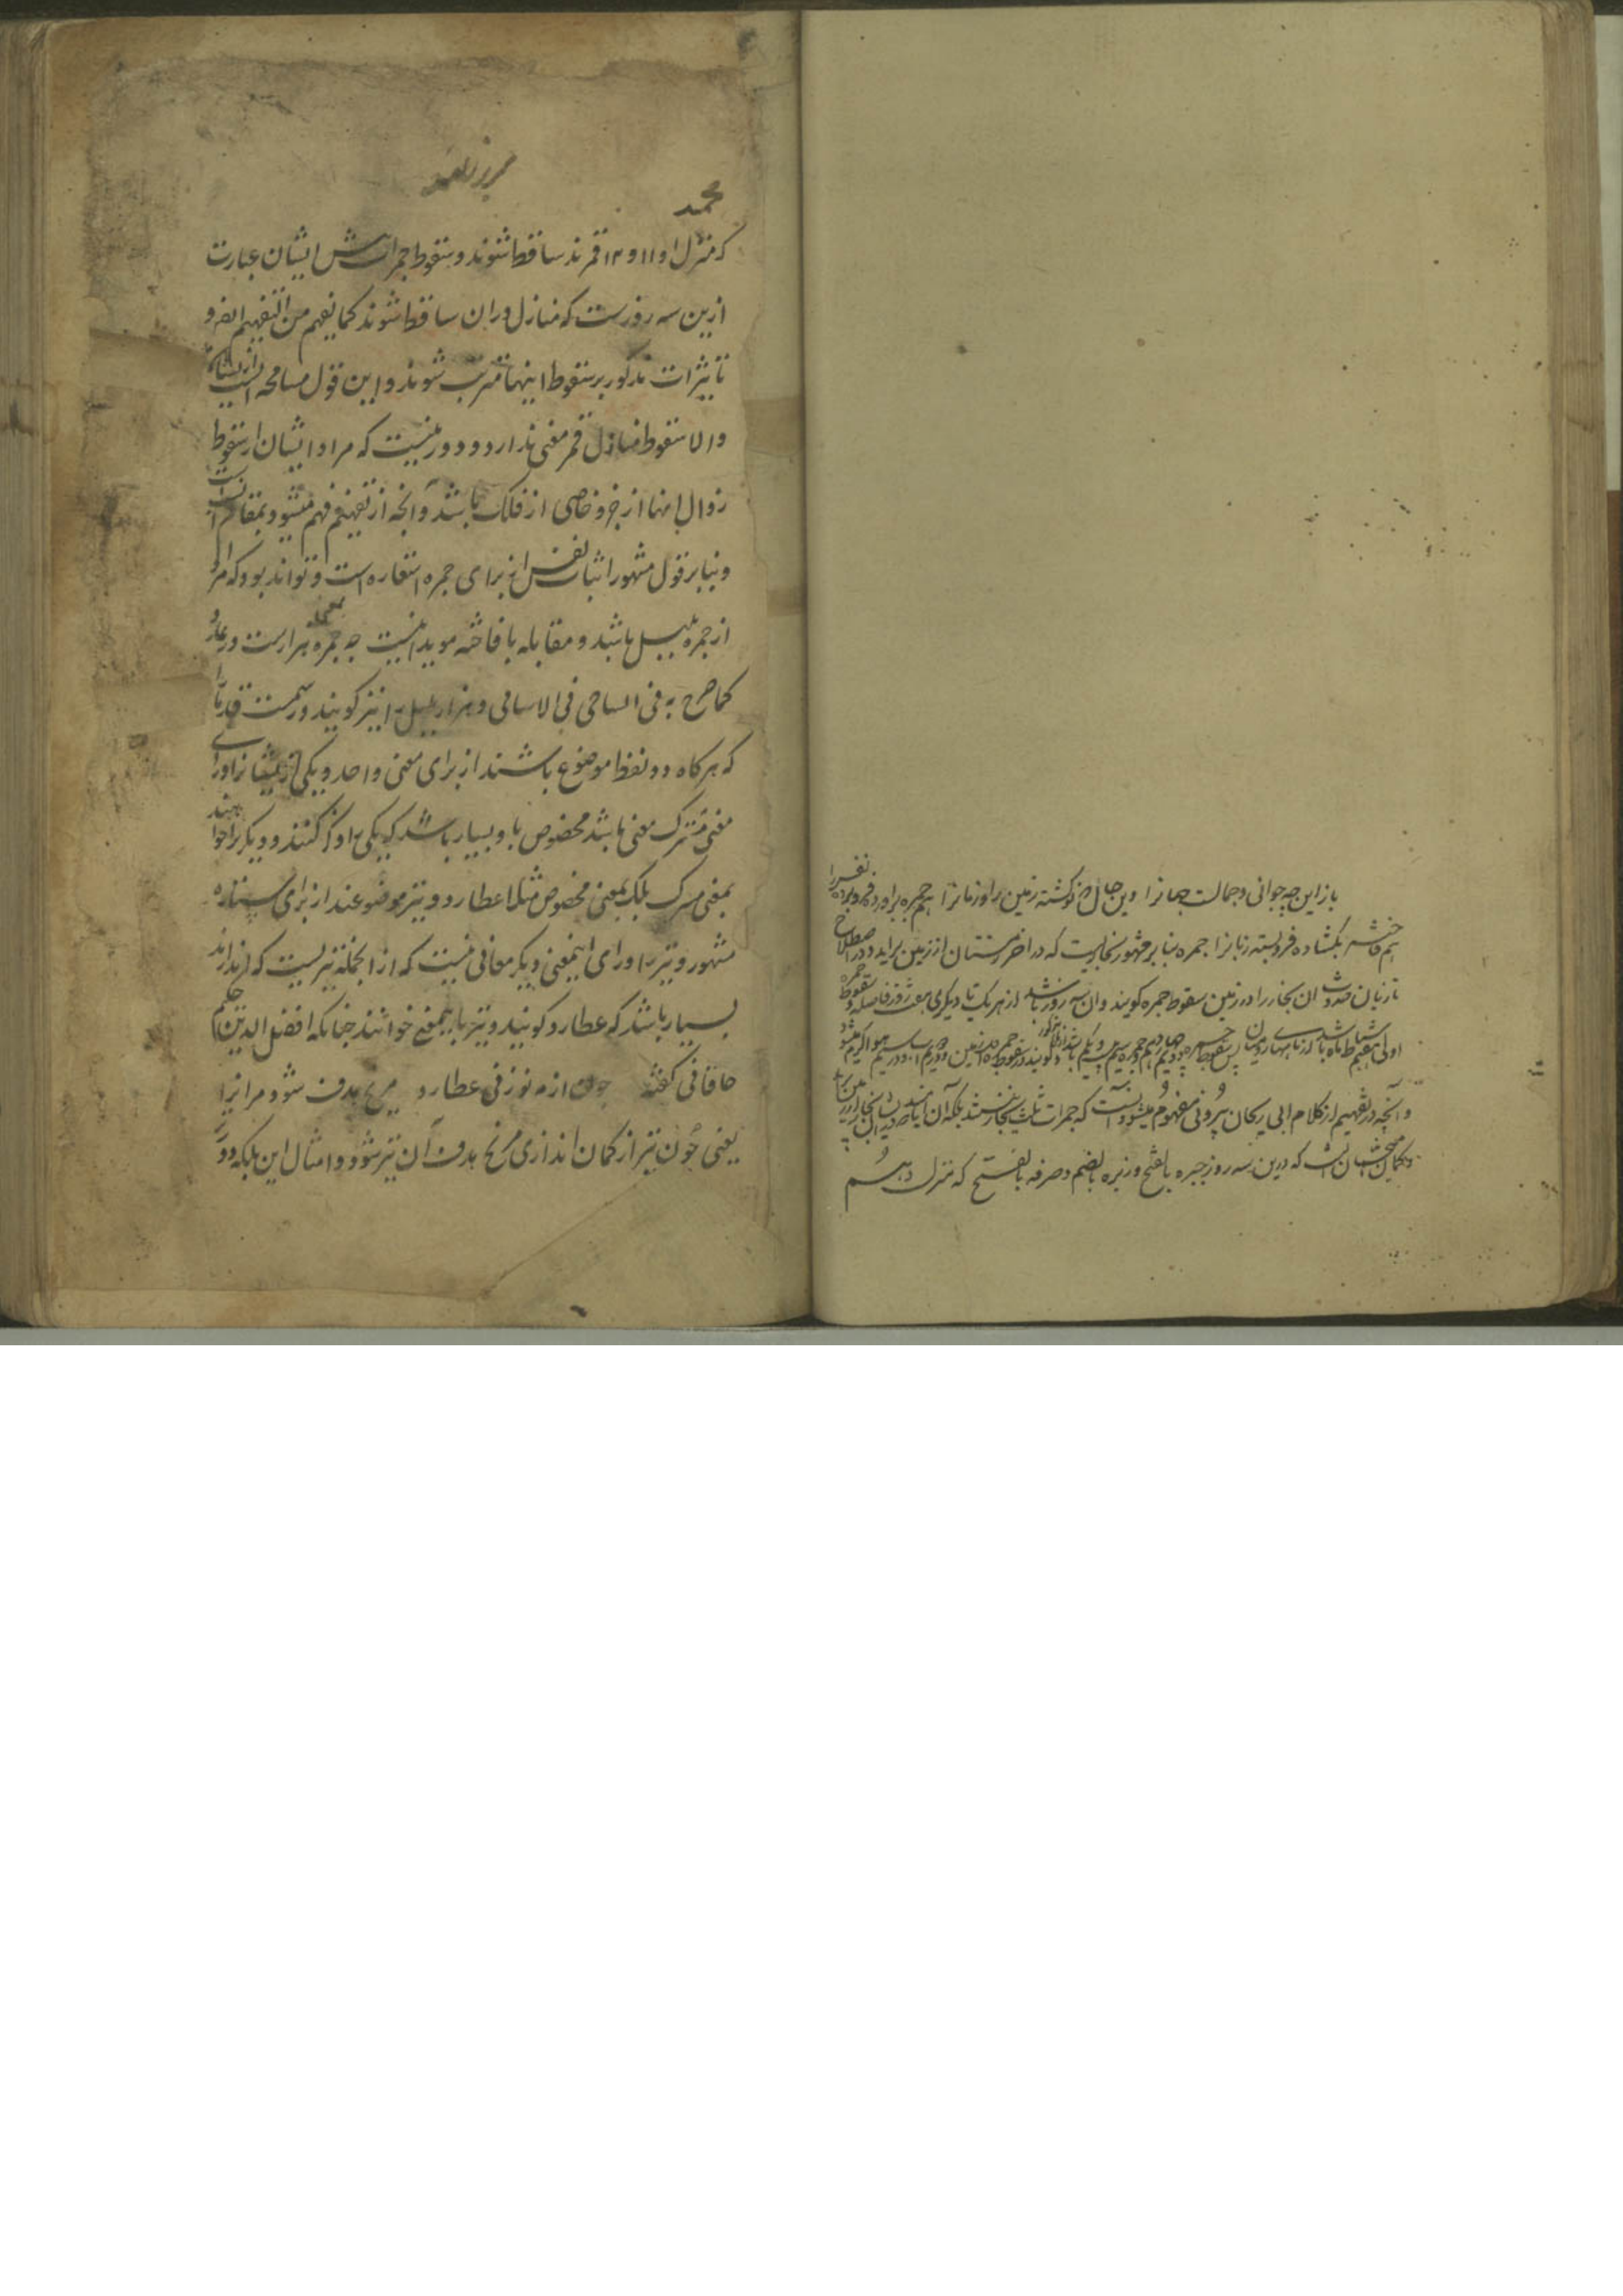 باز این چه جوانی و جمالست جهانرا وین حال که نو گشته زمین را و زمانرا هم جمره براورد فروبرده نفس را
هم فاخته بگشاده فروبسته زبانرا جمره بنابر مشهور بخاریست که در اخر زمستان از زمین براید و در اصطلاح
تازیان حدوث ان بخار را در زمین سقوط جمره گویند وان سه روز باشد از هر یک تا دیگری هفت روز فاصله و سقوط جمره
اولی هفتم شباط ماه باشد از ماههای رومیان پس سقوط جمره دویم چهاردهم و جمره سیم بیست ویکم باشد
و آنچه در تفهیم از کلام ابی ریحان بیرونی مفهوم میشود آنست که جمرات ثلث بخار نیستند بلکه آن
و گمان منجمان آنست که درین سه روز جبهه بالفتح و زبره بالضم و صرفه بالفتح که منزل دهم
محمد
که منزل او ۱۱ و ۱۲ قمرند ساقط شوند و سقوط جمرات پیش ایشان عبارت
ازین سه روزست که منازل دران ساقط شوند کما یفهم من التفهیم ایضا و
تاثیرات مذکور بر سقوط اینها مترتب شوند و این قول مسامحه ایست از ایشان
والا سقوط منازل قمر معنی ندارد و دور نیست که مراد ایشان از سقوط
زوال اینها از جزو خاصی از فلک باشد و آنچه از تفهیم فهم میشود بمقام انسب است
و بنابر قول مشهور اثبات نفس از برای جمره استعاره است و تواند بود که مراد
از جمره بلبل باشد و مقابله با فاخته موید اینست چه جمره بمعنی هزارست در عدد
کما صرح به فی السامی فی الاسامی و هزار بلبل را نیز گویند و رسمست قدما را
که هرگاه دو لفظ موضوع باشند از برای معنی واحد و یکی از ایشانرا ورای
معنی مشترک معنی باشد مخصوص باو بسیار باشد که یکی را ذکر کنند و دیگر را خواهند
بمعنی مشترک بلکه بمعنی مخصوص مثلا عطارد و تیر موضوعند از برای ستاره
مشهور و تیر را ورای اینمعنی دیگر معانی نیست که از انجمله تیریست که اندازند
بسیار باشد که عطارد گویند و تیر باینمعنی خوانند چنانکه افضل الدین حکیم
خاقانی گفته چون از مه نو زنی عطارد مریخ هدف شود مر انرا
یعنی چون تیر از کمان اندازی مریخ هدف آن تیر شود و امثال این بلکه دور